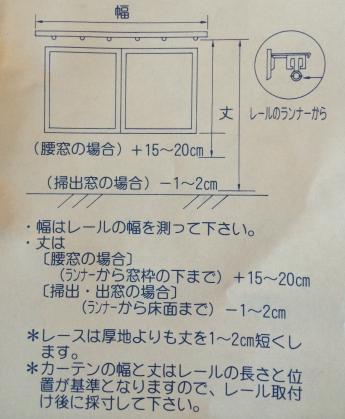 幅
丈
レールのランナーから
(腰窓の場合)+15〜20cm
(掃出窓の場合)−1〜2cm
・幅はレールの幅を測って下さい。
・丈は
〔腰窓の場合〕
(ランナーから窓枠の下まで)+15〜20cm
〔掃出・出窓の場合〕
(ランナーから床面まで)−1〜2cm
＊レースは厚地よりも丈を1〜2cm短くし
ます。
＊カーテンの幅と丈はレールの長さと位
置が基準となりますので、レール取付
け後に採寸して下さい。